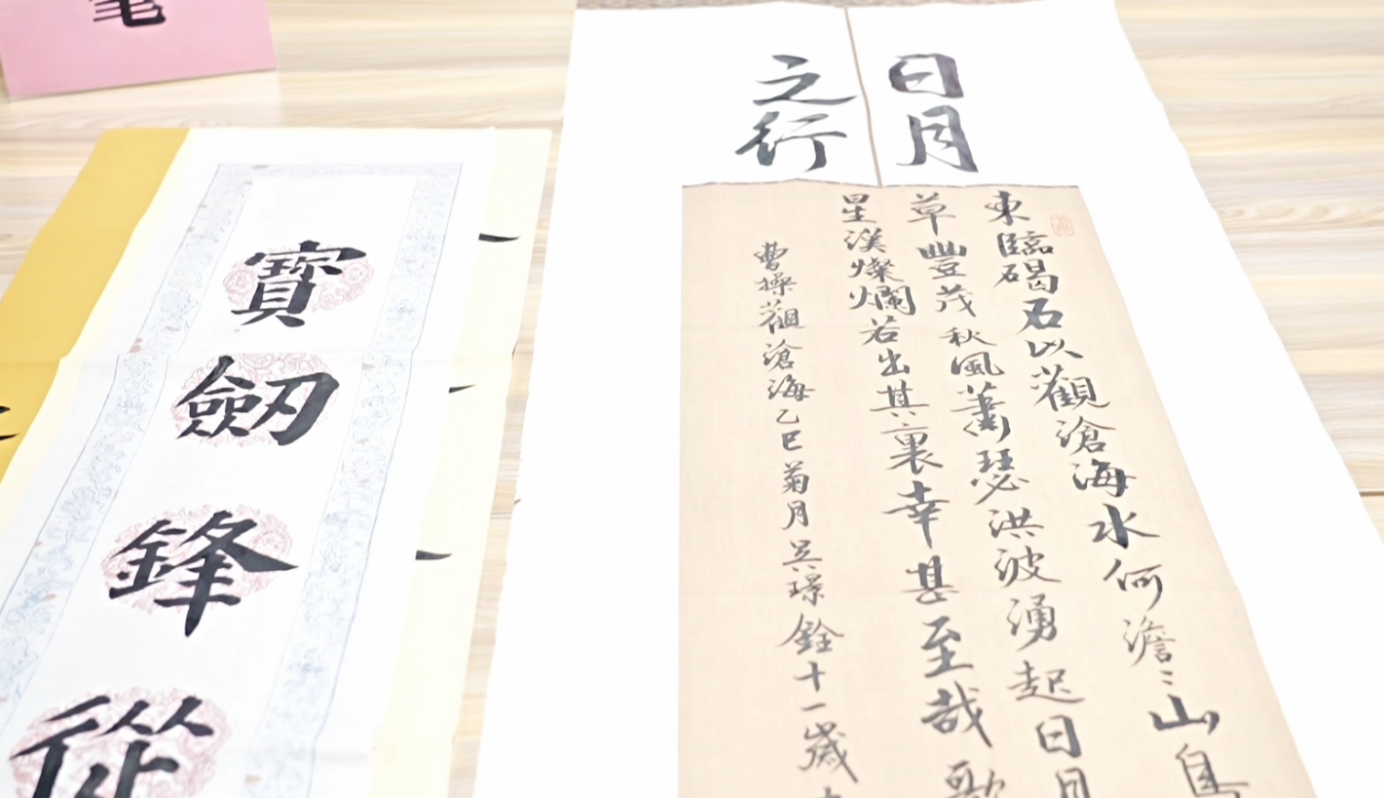 日月
之行
東臨碣石以觀滄海水何澹〻山島
草豐茂秋風蕭瑟洪波湧起日月
星漢燦爛若出其裏幸甚至哉歌
曹操觀滄海乙巳菊月吳璟銓十一歲
寶劒鋒從